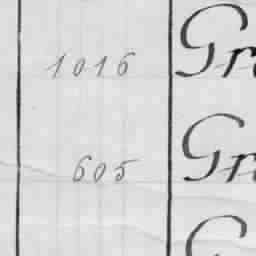 1016 Gr
605 Gr
G